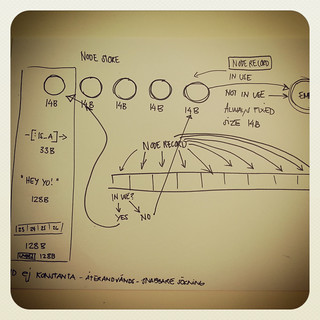 NODE STORE
NODE RECORD
IN USE
NOT IN USE
ALWAYS FIXED
SIZE 14B
14B
14B
14B
14B
14B
-[:IS_A]->
33B
NODE RECORD
"HEY YO!"
128B
IN USE?
YES NO
128B
128B
EJ KONSTANTA - ÅTERANVÄNDS - SNABBARE SÖKNING